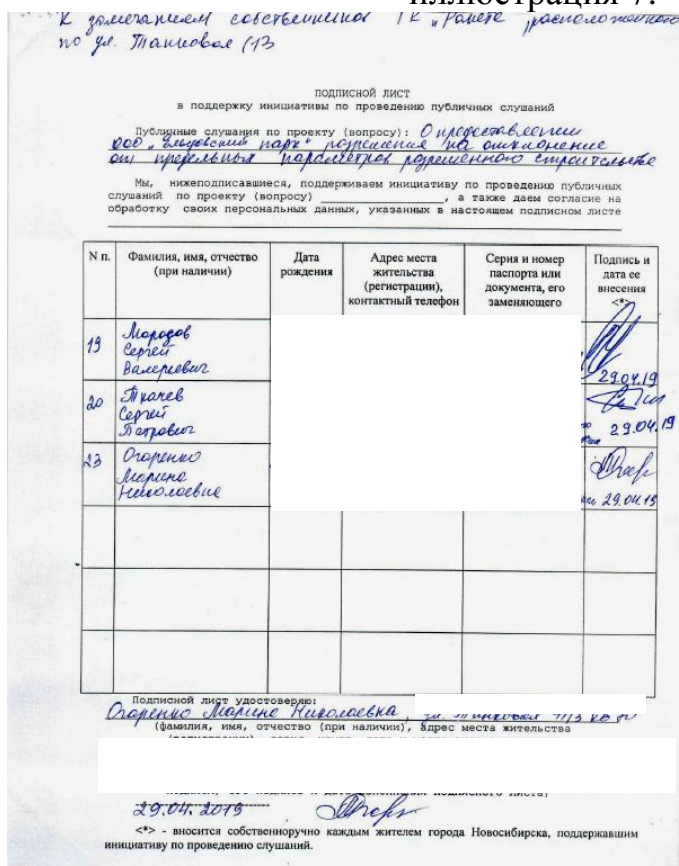 иллюстрация 7.
К замечаниям собственников ГК "Ракета" расположенного
по ул. Танковая
ПОДПИСНОЙ ЛИСТ
в поддержку инициативы по проведению публичных слушаний
Публичные слушания по проекту (вопросу): О предоставлении
ООО "Ельцовский парк" разрешения на отклонение
от предельных параметров разрешенного строительства
Мы, нижеподписавшиеся, поддерживаем инициативу по проведению публичных
слушаний по проекту (вопросу) ____________, а также даем согласие на
обработку своих персональных данных, указанных в настоящем подписном листе
N п. Фамилия, имя, отчество (при наличии) Дата рождения Адрес места жительства (регистрации), контактный телефон Серия и номер паспорта или документа, его заменяющего Подпись и дата ее внесения <*>
19 Сергей Валериевич 29.04.19
20 Ткачев Сергей Петрович 29.04.19
23 Огаренко Марина Николаевна 29.04.19
Подписной лист удостоверяю:
Огаренко Марина Николаевна, ул. Танковая
(фамилия, имя, отчество (при наличии), адрес места жительства
29.04.2019
<*> - вносится собственноручно каждым жителем города Новосибирска, поддержавшим
инициативу по проведению слушаний.